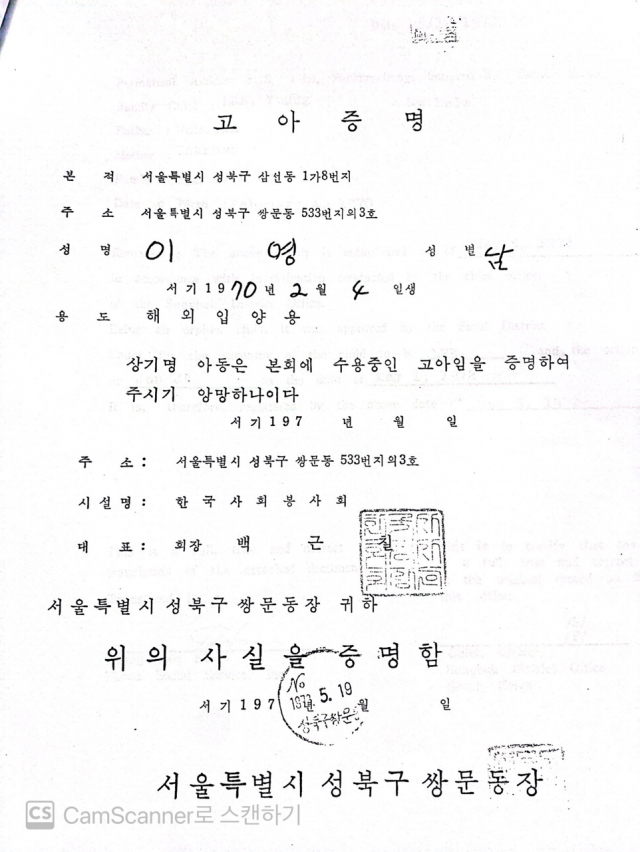 고 아 증 명
본 적 서울특별시 성북구 삼선동 1가8번지
주 소 서울특별시 성북구 쌍문동 533번지의3호
성 명 이 영 성 별 남
서 기 19 70 년 2 월 4 일생
용 도 해 외 입 양 용
상기명 아동은 본회에 수용중인 고아임을 증명하여
주시기 앙망하나이다
서 기 197 년 월 일
주 소 : 서울특별시 성북구 쌍문동 533번지의3호
시 설 명 : 한 국 사 회 봉 사 회
대 표 : 회장 백 근 칠
서울특별시성북구쌍문동장 귀하
위 의 사 실 을 증 명 함
서 기 197 년 월 일
No
5. 19
성북구쌍문
서울특별시 성북구 쌍문동장
CS CamScanner로 스캔하기